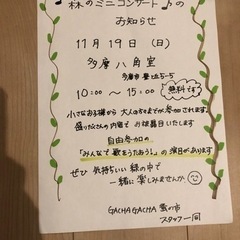 森のミニコンサート♪の
お知らせ
11月19日（日）
多摩八角堂
10:00 〜 15:00 無料です
小さなお子様から 大人の方までが参加されます。
盛りだくさんの内容で お披露目いたします
自由参加の
「みんなで歌をうたおう！」の演目があります
ぜひ 気持ちいい緑の中で
一緒に楽しみませんか
GACHA GACHA
スタッフ一同